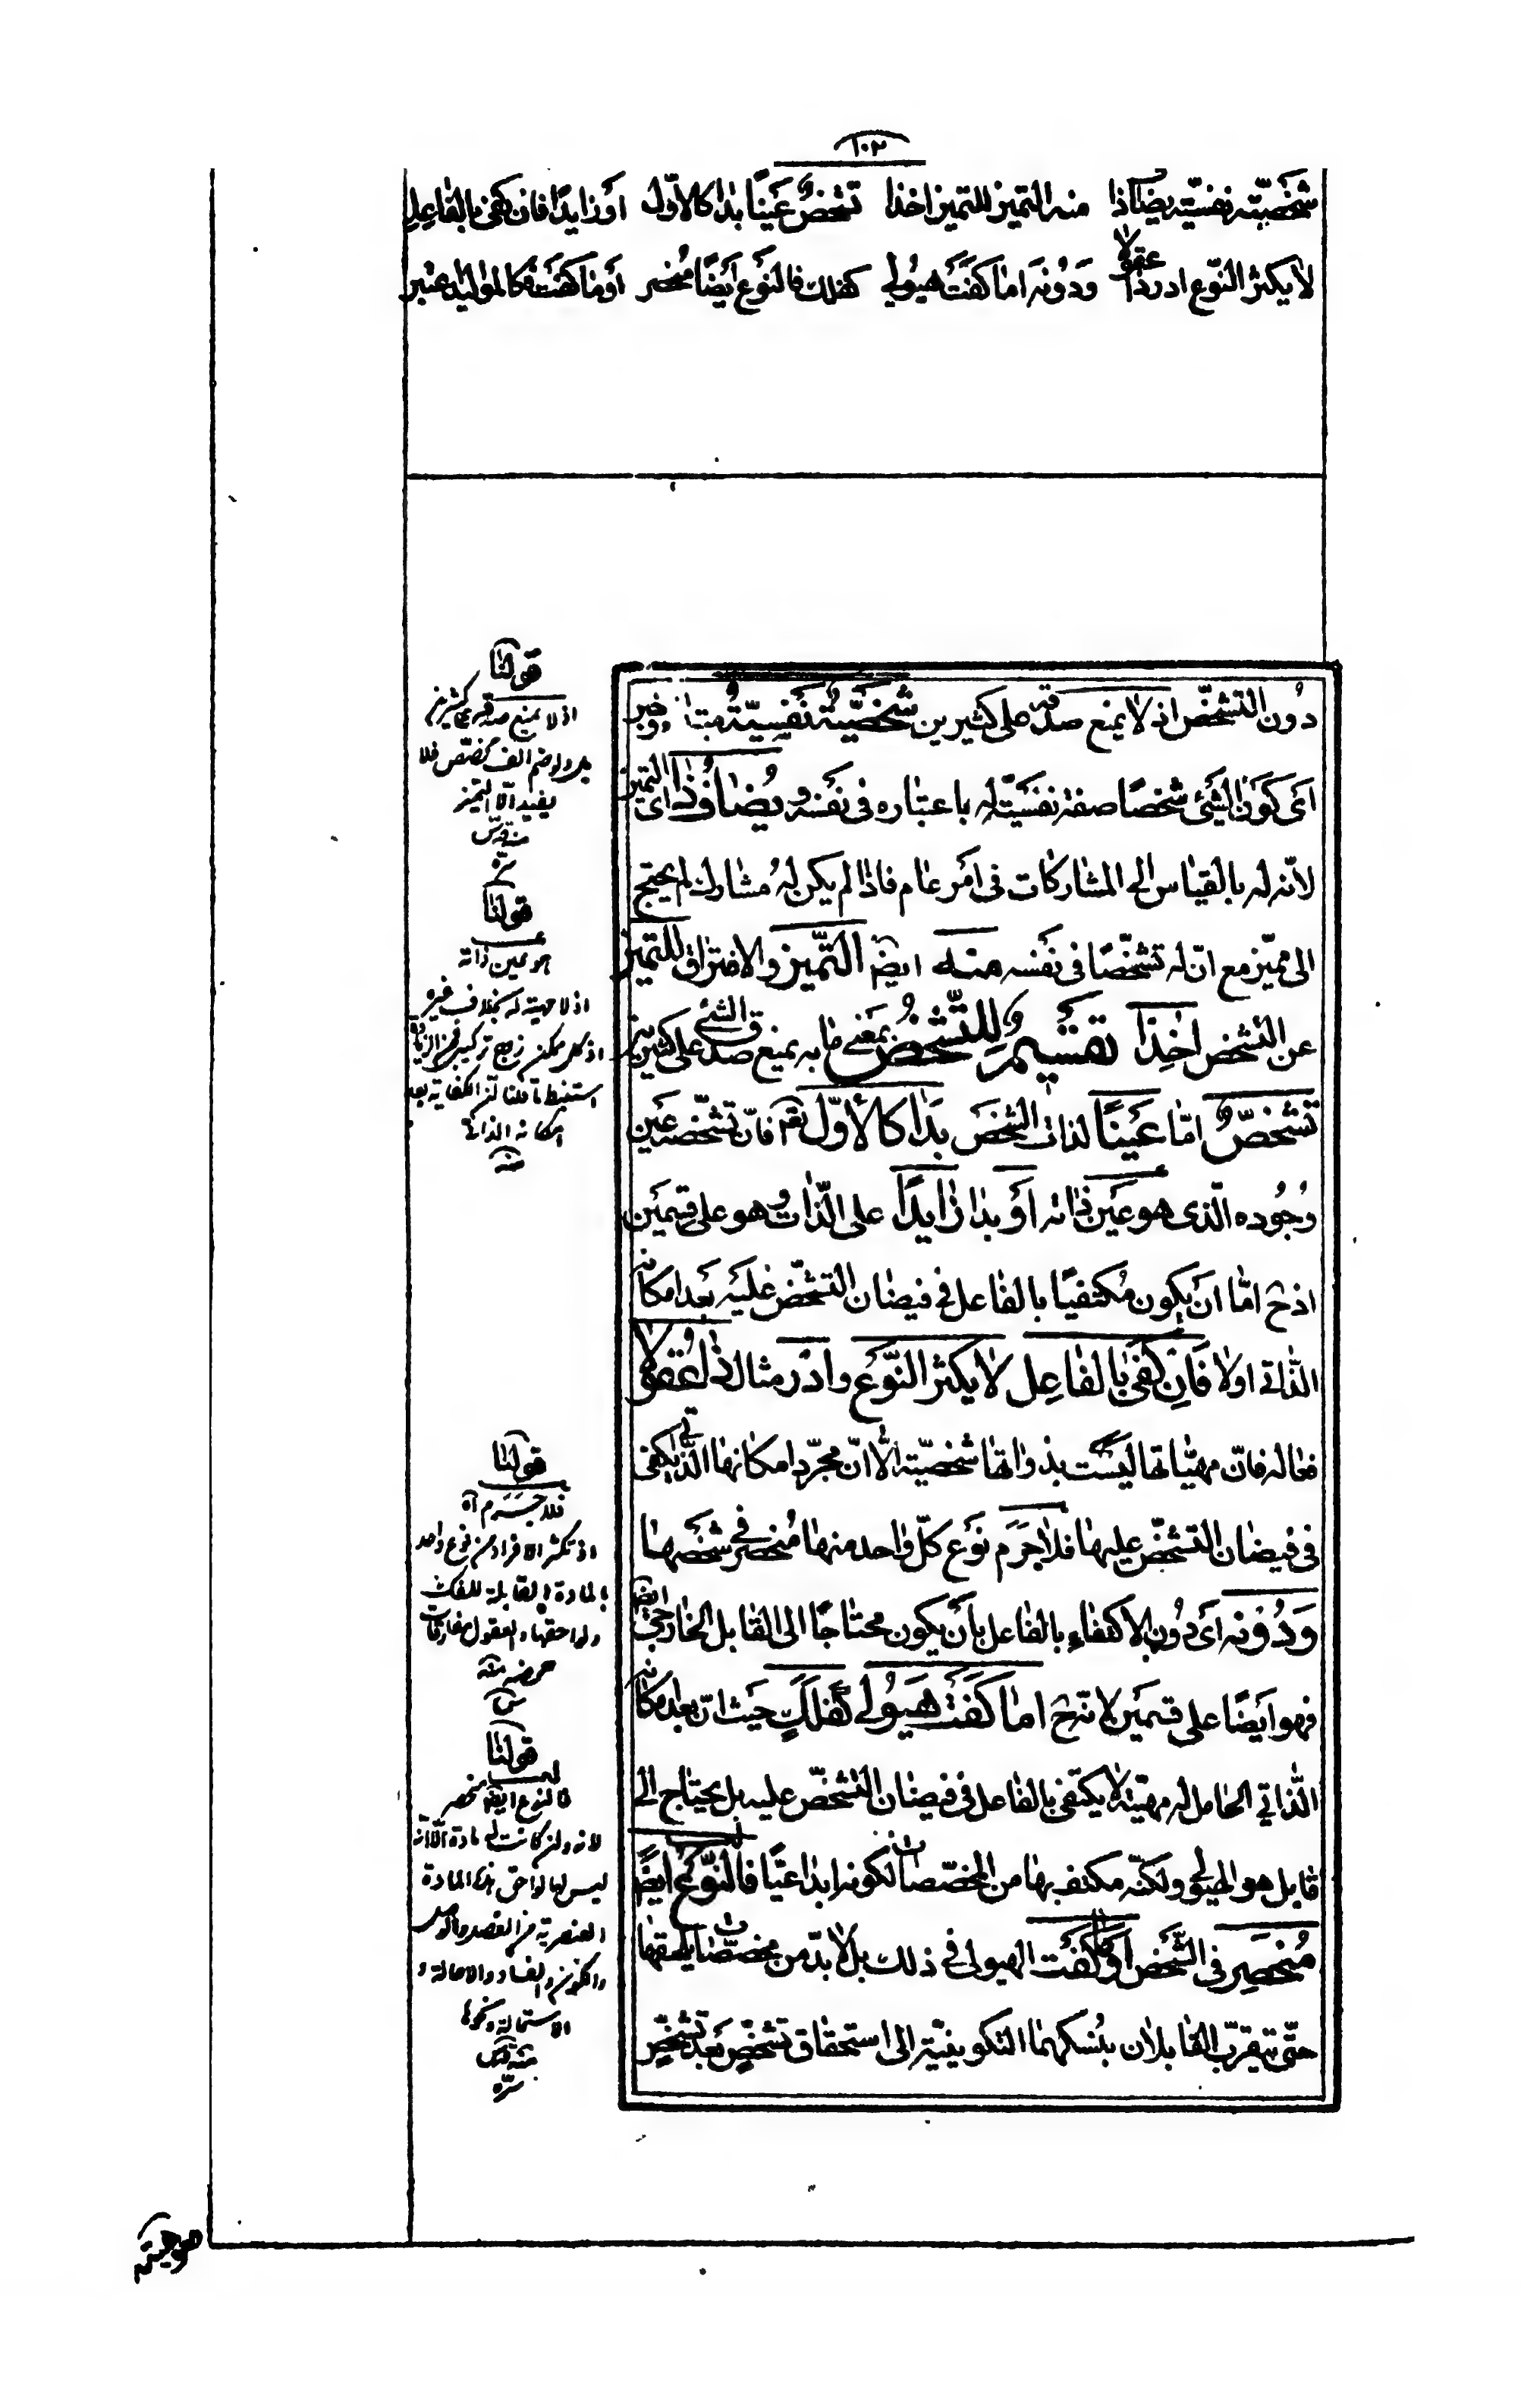 ١٠٢
شخصيّته نفسيّة يضاف ذا منه التميز للتميز اخذا تشخّص عينًا بدا كالاوّل أو زايدًا فان كفى بالفاعل
لا يكثر النّوع ادر ذا عقولا ودونه اما كفت هيولى كفلك فالنوع أيضًا منحصر أو ما كفت كالمواليد اعتبر
دون التشخّص اذ لا يمنع صدقه على كثيرين شخصيّة نفسيّة خبر
اى كون الشىء شخصًا صفة نفسيّة له باعتباره فى نفسه و يضاف ذا اى التميز
لانّه له بالقياس الى المشاركات فى امر عام فاذا لم يكن له مشارك لم يحتج
الى مميّز مع انّ له تشخّصًا فى نفسه منه ايضا التّميز والافتراق للتميز
عن التشخص اخذا تقسيم للتّشخّص بمعنى ما به يمنع صدق الشىء على كثيرين
تشخّص امّا عينًا لذات الشخص بدا كالأوّل تعم فانّ تشخّصه عين
وجوده الّذى هو عين ذاته أو بدا زايدًا على الذّات وهو على قسمين
اذ ح امّا ان يكون مكتفيًا بالفاعل فى فيضان التشخّص عليه بعد امكانه
الذّاتى اولا فان كفى بالفاعل لا يكثر النّوع وادر مثال ذا عقولا
فعاله فانّ مهيّاتها ليست بذواتها شخصيّة الّا انّ مجرّد امكانها الذّاتى يكفى
فى فيضان التشخّص عليها فلا جرم نوع كلّ واحد منها منحصر فى شخصها
ودونه أى دون الاكتفاء بالفاعل بأن يكون محتاجًا الى القابل الخارجى ايضا
فهو ايضًا على قسمين لانّه ح اما كفت هيولى كفلك حيث انّ بعد امكانه
الذّاتي الحامل له مهيّته لا يكتفى بالفاعل فى فيضان التشخّص عليه بل يحتاج الى
قابل هو الهيولى ولكنّه مكتف بها من المخصّصات لكونه ابداعيًّا فالنّوع ايضًا
منحصر فى الشّخص أو ما كفت الهيولى فى ذلك بل لا بدّ من مخصّصات يلحقها
حتّى يتقرّب القابلان بنسكهما التكوينيّة الى استحقاق تشخّص بعد تشخّص
قولنا
اذ لا يمنع صدقه على كثيرين
بل ولو ضم الف مخصّص فلا
يفيد الّا التميز
منه قدّس
سرّه
قولنا
هو عين ذاته
اذ لا مهية له بخلاف غيره
اذ كل ممكن زوج تركيبى
امكانه الذاتى
منه
قولنا
فلا جرم آه
اذ تكثر الافراد من نوع واحد
بالمادة القابلة للفك
ولواحقها والعقول مفارقات
محضه منه
س
قولنا
فالنوع ايضا منحصر
لانه وان كانت له مادة الّا انّه
ليس لها لواحق هذه المادة
العنصرية من الفصل والوصل
والكون والفساد والاحالة و
الاستحالة ونحوها
منه قدس
سرّه